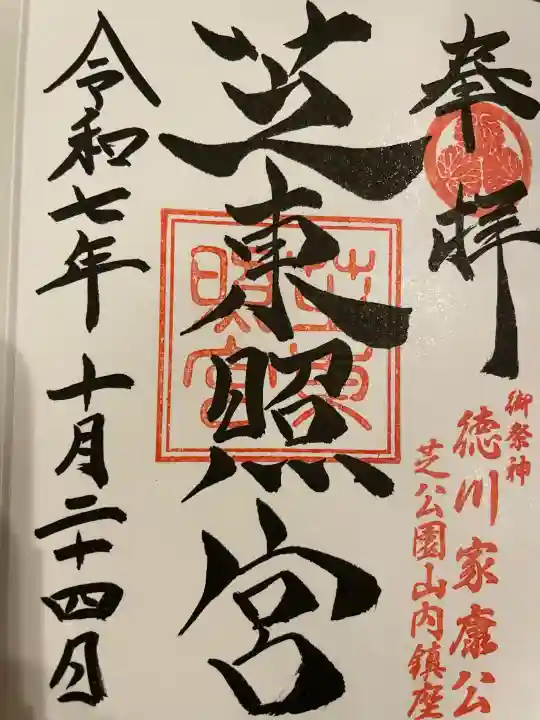 奉拝
御祭神
徳川家康公
芝公園山内鎮座
芝東照宮
芝東照宮
令和七年 十月二十四日